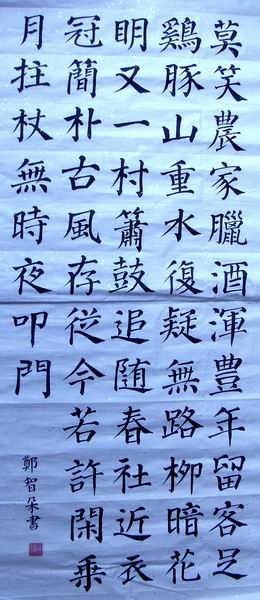 莫笑農家臘酒渾豊年留客足
鷄豚山重水復疑無路柳暗花
明又一村簫鼓追随春社近衣
冠簡朴古風存従今若許閑乗
月拄杖無時夜叩門
鄭智朵書